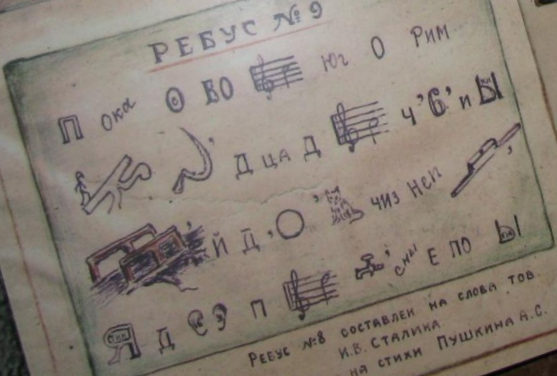 РЕБУС № 9
П ока О ВО ЮГ О РИМ
Д ЦА Д Ч'6' и Ы
Й Д , О , ЧИЗ НЕП
Я Д П Е ПО Ы
РЕБУС №8 СОСТАВЛЕН НА СЛОВА ТОВ.
И.В. СТАЛИНА.
НА СТИХИ ПУШКИНА А.С.